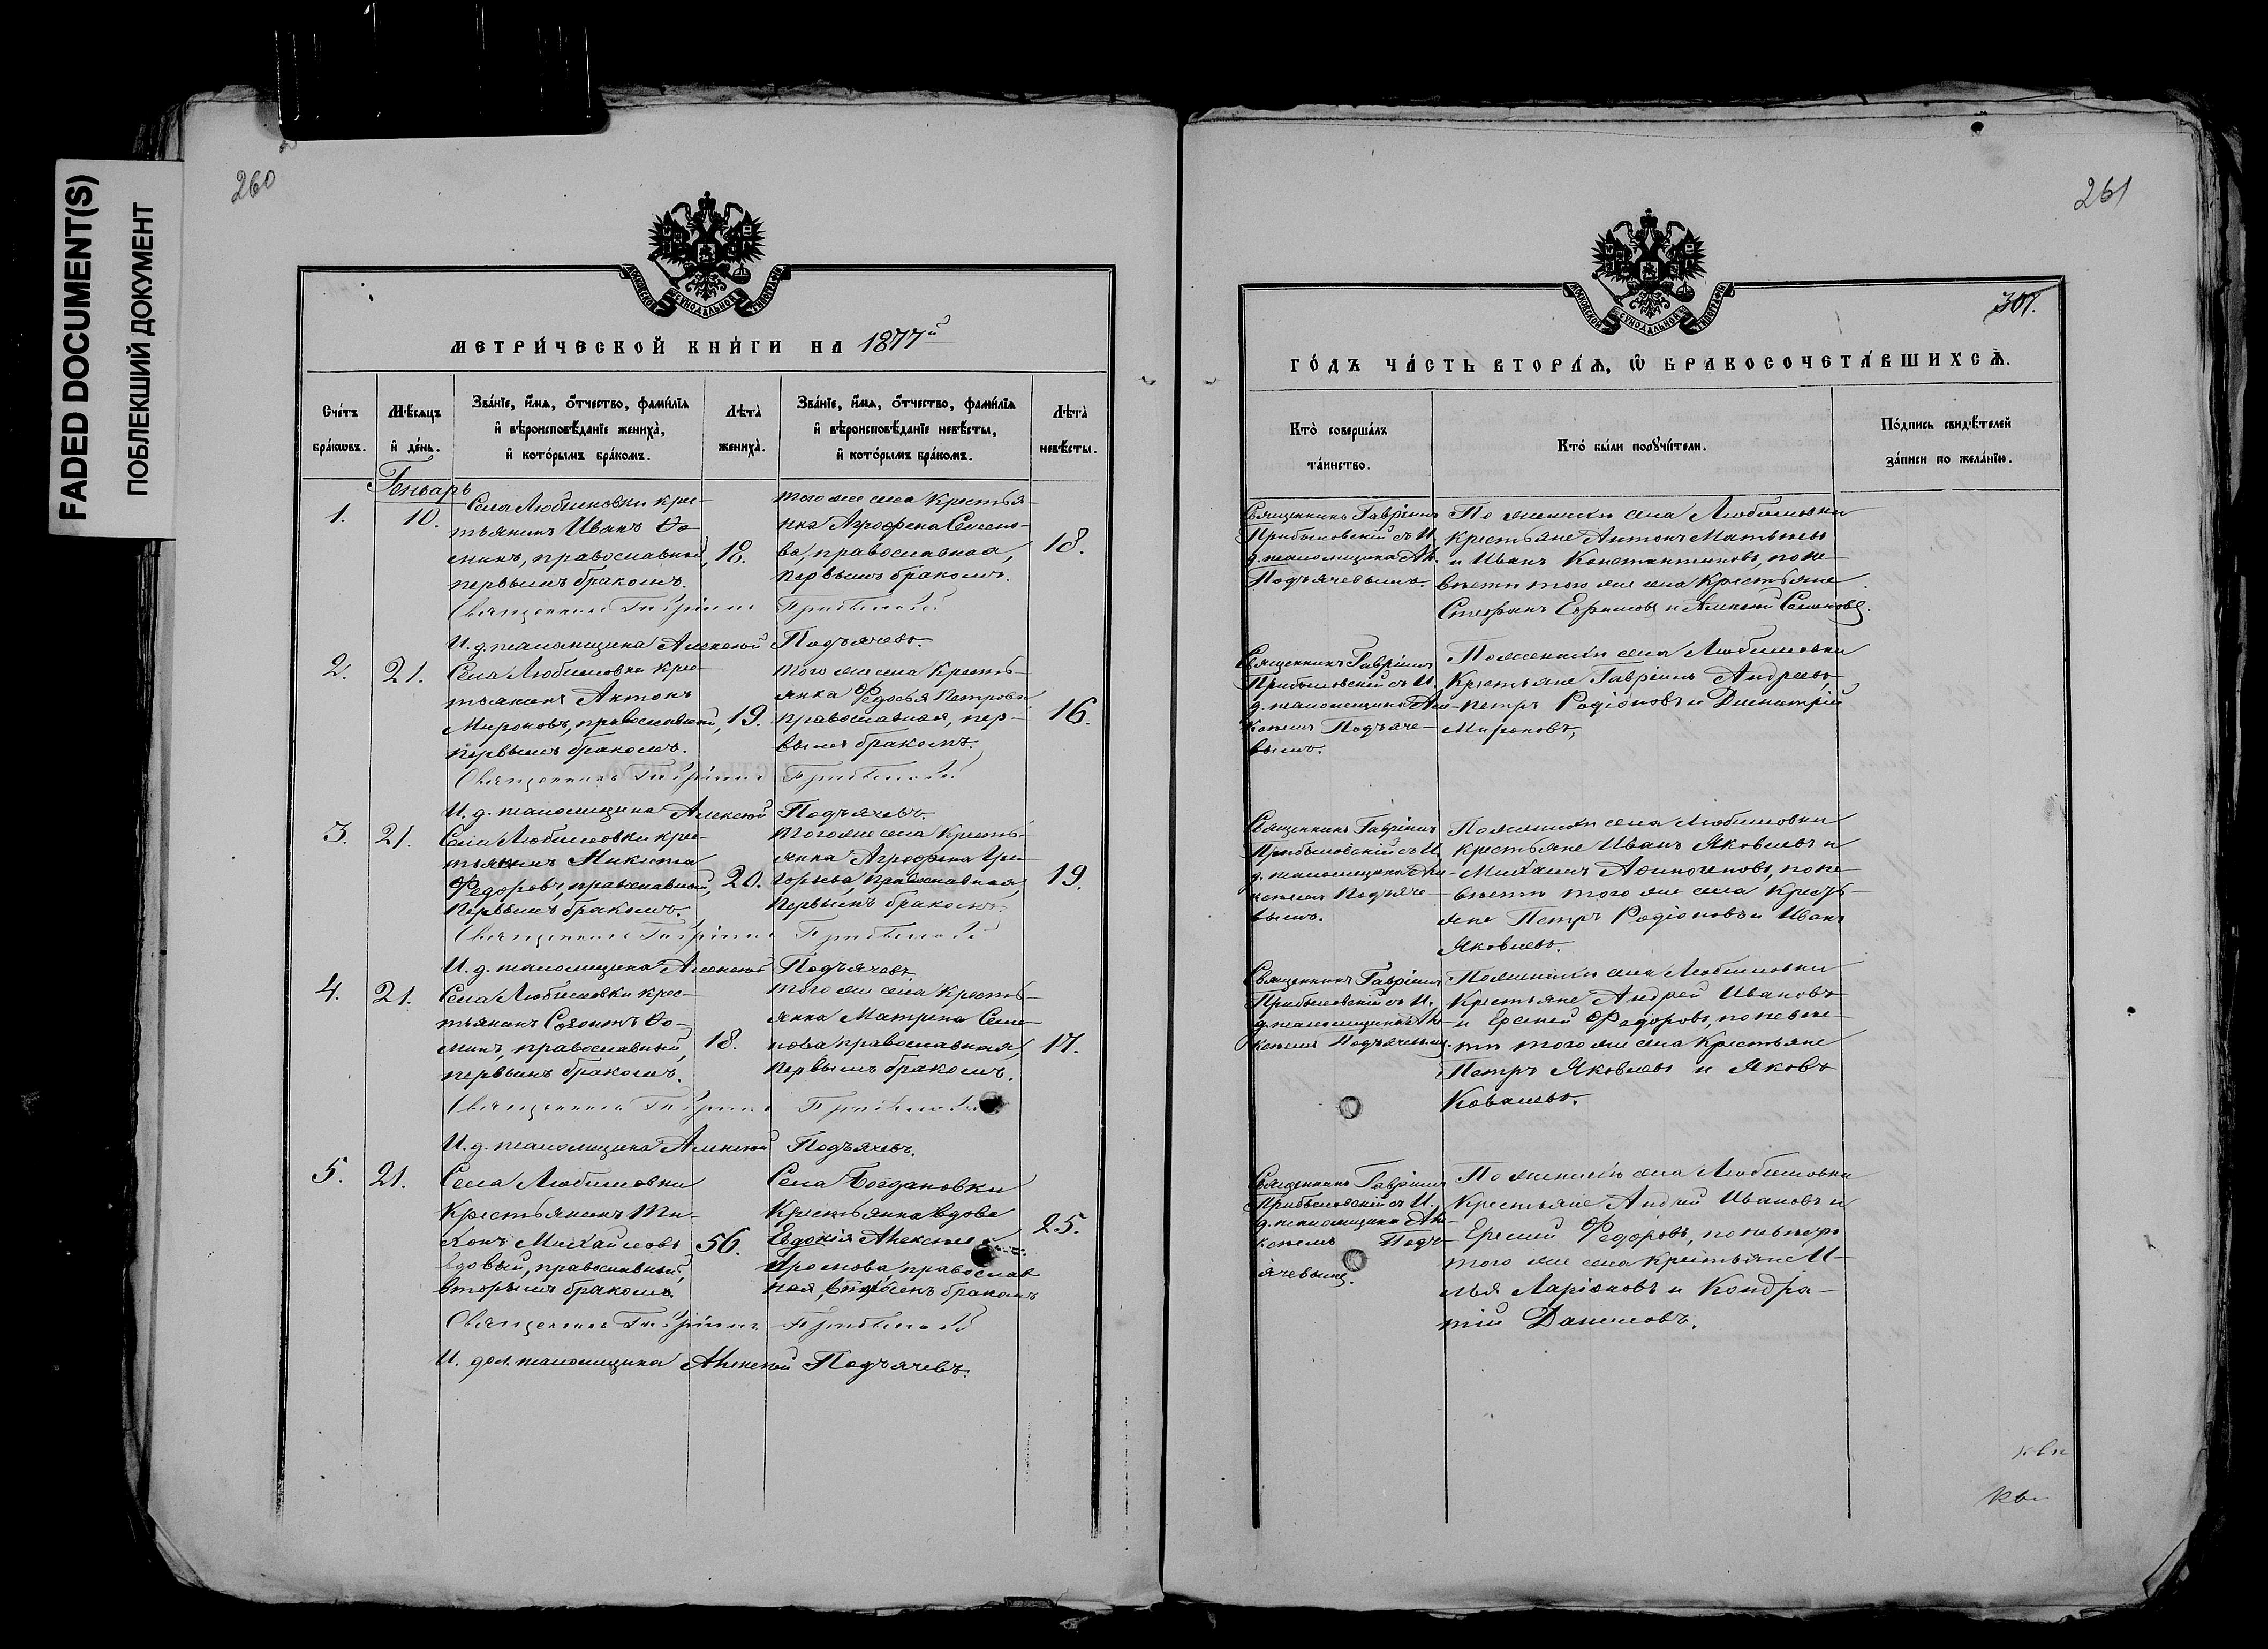 FADED DOCUMENT(S)
ПОБЛЕКШИЙ ДОКУМЕНТ
260
МОСКОВСКОЙ СѴНОДАЛЬНОЙ ТИПОГРАФІИ
МЕТРИ́ЧЕСКОЙ КНИ́ГИ НА 1877й
Сче́тъ бра́кѡвъ.
Мѣ́сяцъ и҆ де́нь.
Зва́нїе, и҆́мѧ, ѻ҆́тчество, фамѝлїѧ
и҆ вѣроисповѣ́данїе жениха̀,
и҆ кото́рымъ бра́комъ.
Лѣта̀ жениха̀.
Зва́нїе, и҆́мѧ, ѻ҆́тчество, фамѝлїѧ
и҆ вѣроисповѣ́данїе невѣ́сты,
и҆ кото́рымъ бра́комъ.
Лѣта̀ невѣ́сты.
Генварь
1.
10.
Села Любимовки кре-
стьянинъ Иванъ Ѳо-
минъ, православный,
первымъ бракомъ.
18.
того же села крестья-
нка Агрофена Семено-
ва, православная,
первымъ бракомъ.
18.
Священникъ Гавріилъ
И. д. псаломщика Алексей Подъячевъ.
2.
21.
Села Любимовки кре-
стьянинъ Антонъ
Мироновъ, православный,
первымъ бракомъ.
19.
того же села кресть-
янка Ѳедосья Петрова
православная, пер-
вымъ бракомъ.
16.
Священникъ Гавріилъ
И. д. псаломщика Алексей Подъячевъ.
3.
21.
Села Любимовки кре-
стьянинъ Никита
Федоровъ, православный,
первымъ бракомъ.
20.
того же села кресть-
янка Агрофена Гри-
горьева, православная,
первымъ бракомъ.
19.
Священникъ Гавріилъ
И. д. псаломщика Алексей Подъячевъ.
4.
21.
Села Любимовки крес-
тьянинъ Созонтъ Ѳо-
минъ, православный,
первымъ бракомъ.
18.
того же села кресть-
янка Матрена Семе-
нова православная,
первымъ бракомъ.
17.
Священникъ Гавріилъ
И. д. псаломщика Алексей Подъячевъ.
5.
21.
Села Любимовки
крестьянинъ Ти-
хонъ Михайловъ
вдовый, православный,
вторымъ бракомъ.
56.
Села Богдановки
крестьянка вдова
Евдокія
православ
ная, бракомъ
25.
Священникъ Гавріилъ
И. дол. псаломщика Алексей Подъячевъ.
261
307.
МОСКОВСКОЙ СѴНОДАЛЬНОЙ ТИПОГРАФІИ
ГО́ДЪ ЧА́СТЬ ВТОРА́Ѧ, Ѡ҆ БРАКОСОЧЕТА́ВШИХСѦ.
Кто̀ соверша́лъ
та́инство.
Кто̀ бы́ли порꙋчи́тели.
По́дпись свидѣ́телей
за́писи по жела́нїю.
Священникъ Гавріилъ
Прибыловскій съ И.
д. псаломщика Ал.
Подъячевымъ.
По женихѣ села Любимовки
крестьяне Антонъ Матвѣевъ
и Иванъ Константиновъ, по не-
вѣстѣ того же села крестьяне
Стефанъ Ефимовъ и Алексей Семеновъ.
Священникъ Гавріилъ
Прибыловскій съ И.
д. псаломщика Але-
ксеемъ Подъяче-
вымъ.
По женихѣ села Любимовки
крестьяне Гавріилъ Андреевъ,
Петръ Родіоновъ и Дмитрій
Мироновъ,
Священникъ Гавріилъ
Прибыловскій съ И.
д. псаломщика Але-
ксеемъ Подъяче-
вымъ.
По женихѣ села Любимовки
крестьяне Иванъ Яковлевъ и
Михаилъ Афиногеновъ, по не-
вѣстѣ того же села кресть-
яне Петръ Родіоновъ и Иванъ
Яковлевъ.
Священникъ Гавріилъ
Прибыловскій съ И.
д. псаломщика Але-
ксеемъ Подъячевымъ.
По женихѣ села Любимовки
крестьяне Андрей Ивановъ
и Еремей Федоровъ, по невѣс-
тѣ того же села крестьяне
Петръ Яковлевъ и Яковъ
Ковалевъ.
Священникъ Гавріилъ
Прибыловскій съ И.
д. псаломщика Але-
ксеемъ Подъ-
ячевымъ.
По женихѣ села Любимовки
крестьяне Андрей Ивановъ и
Еремей Федоровъ, по невѣстѣ
того же села крестьяне И-
лья Ларіоновъ и Кондра-
тій Даниловъ.